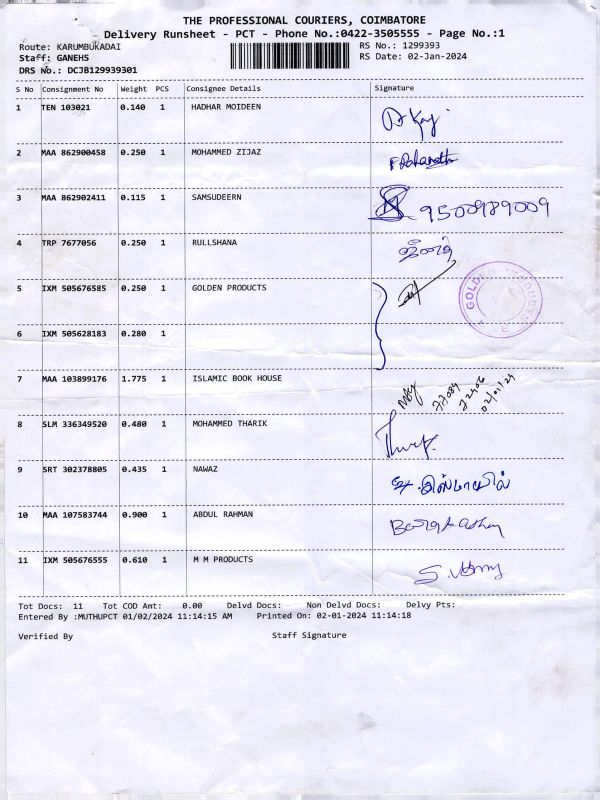 THE PROFESSIONAL COURIERS, COIMBATORE
Delivery Runsheet - PCT - Phone No.:0422-3505555 - Page No.:1
Route: KARUMBUKADAI RS No.: 1299393
Staff: GANEHS RS Date: 02-Jan-2024
DRS No.: DCJB129939301
S No Consignment No Weight PCS Consignee Details Signature
1 TEN 103021 0.140 1 HADHAR MOIDEEN
2 MAA 862900458 0.250 1 MOHAMMED ZIJAZ
3 MAA 862902411 0.115 1 SAMSUDEERN 9500989009
4 TRP 7677056 0.250 1 RULLSHANA
5 IXM 505676585 0.250 1 GOLDEN PRODUCTS
6 IXM 505628183 0.280 1
7 MAA 103899176 1.775 1 ISLAMIC BOOK HOUSE 02/01/24
8 SLM 336349520 0.480 1 MOHAMMED THARIK
9 SRT 302378805 0.435 1 NAWAZ
10 MAA 107583744 0.900 1 ABDUL RAHMAN
11 IXM 505676555 0.610 1 M M PRODUCTS
Tot Docs: 11 Tot COD Amt: 0.00 Delvd Docs: Non Delvd Docs: Delvy Pts:
Entered By :MUTHUPCT 01/02/2024 11:14:15 AM Printed On: 02-01-2024 11:14:18
Verified By Staff Signature